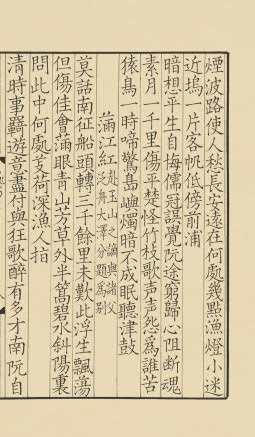 煙波路使人愁長安遠在何處幾點漁燈小迷
近塢一片客帆低傍前浦
暗想平生自悔儒冠誤覺阮途窮歸心阻斷魂
素月一千里傷平楚怪竹枝歌声声怨爲誰苦
猿鳥一時啼驚島嶼燭暗不成眠聽津鼓
滿江紅
泛舟大澤分題爲別
莫話南征船頭轉三千餘里未歎此浮生飄蕩
但傷佳會滿眼青山芳草外半篙碧水斜陽裏
問此中何處芰荷深漁人指
清時事羇遊意盡付與狂歌醉有多才南阮自